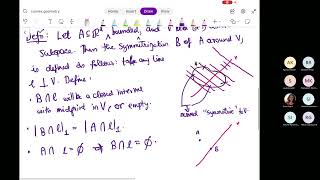 Defn: Let A ⊆ ℝᵈ, bounded, and V
Subspace. Then the Symmetrization B of A around V,
is defined as follows: take any line
ℓ ⊥ V. Define:
• B∩ℓ will be a closed interval
with midpoint in V, or empty.
• |B∩ℓ|₁ = |A∩ℓ|₁
• A∩ℓ = ∅ ⇒ B∩ℓ = ∅.
"symmetric" to V.
A
B